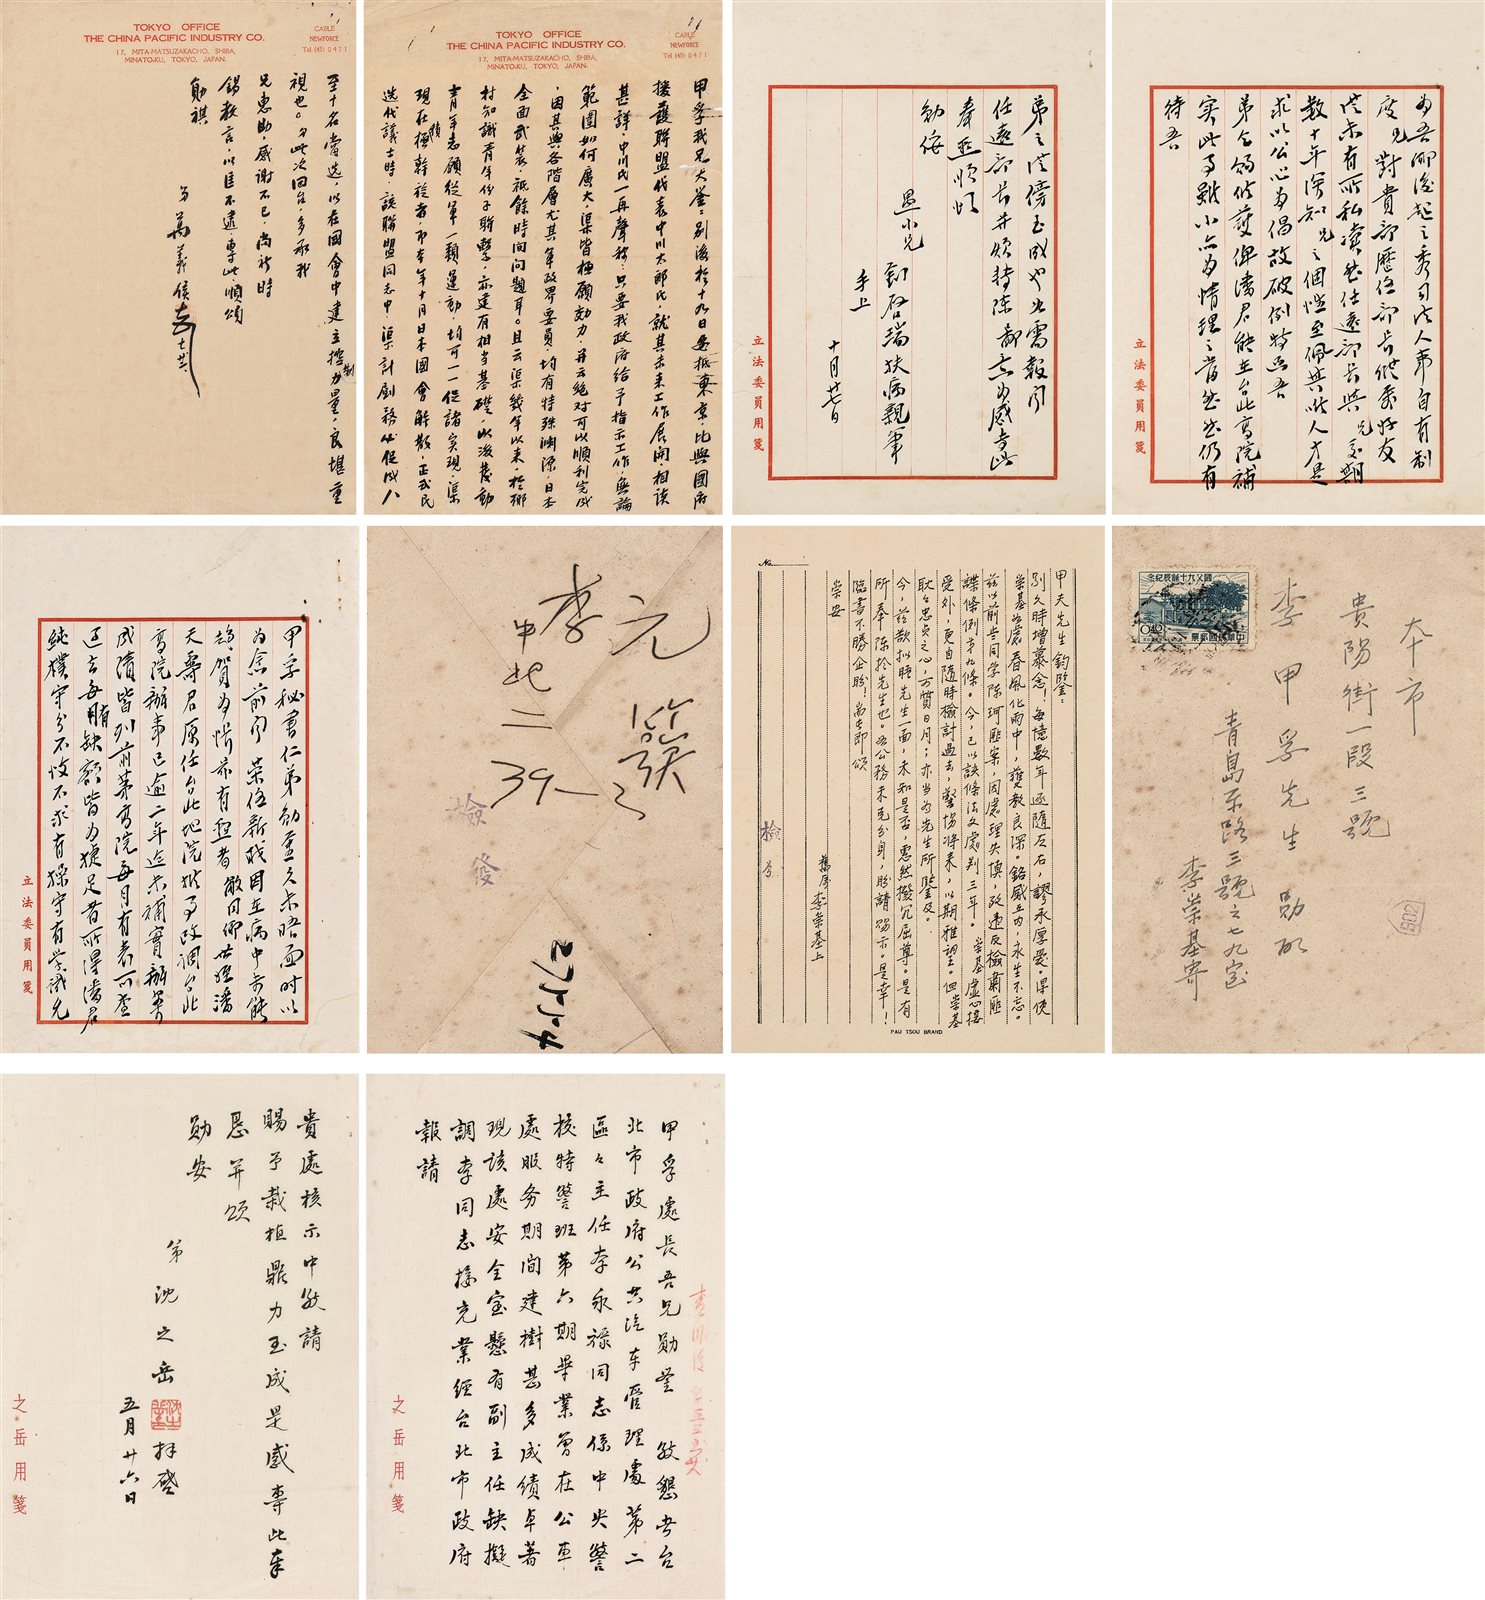 為吾鄉後起之秀司法人事自有制
度兄對貴部歷任部長縱委好友
從未有所私瀆然任遠部長與兄多期
數十年深知兄之個性至佩其以人才是
求以公心為倡故破例特函吾
弟全錫從護俾潘君能在台北高院補
實此事雖小亦為情理之當然然仍有
待吾
立法委員用箋
弟之從傍玉成也如需報聞
任遠部長并煩轉陳鄙意為感专此
奉懇順頌
勛綏
愚小兄 劉啓瑞扶病親筆
手上
十月廿七日
立法委員用箋
TOKYO OFFICE
THE CHINA PACIFIC INDUSTRY CO.
17, MITA-MATSUZAKACHO, SHIBA,
MINATO-KU, TOKYO, JAPAN.
CABLE
NEWFORCE
Tel (45) 0471
甲孚我兄大鉴：别後於十九日安抵東京，比與國府
援護聯盟代表中川太郎氏，就其未來工作展開，相談
甚詳，中川氏一再聲稱：只要我政府給予指示工作，無論
範圍如何廣大，渠皆極願効力，并云絕對可以順利完成
，因其與各階層尤其軍政界要員，均有特殊淵源，日本
全面武裝，祇餘時间问題耳。且云渠幾年以來，於鄉
村知識青年份子聯繫，亦建有相当基礎，此後發動
青年志願從軍一類運動，均可一一促諸实現，渠
現在積極幹旋者，即本年十月日本國會解散，正式民
选代議士時，該聯盟同志中，渠計劃務必促成八
TOKYO OFFICE
THE CHINA PACIFIC INDUSTRY CO.
17, MITA-MATSUZAKACHO, SHIBA,
MINATO-KU, TOKYO, JAPAN.
CABLE
NEWFORCE
Tel (45) 0471
至十名當选，以在國會中建立控制力量，良堪重
視也。弟此次回台，多承我
兄惠助，感谢不已，尚祈時
錫教言，以匡不逮，專此順頌
勛祺
弟 葛義信
本市
貴陽街一段三號
李甲孚先生 勛啟
青島東路三號之七九室
李榮基寄
國父九十誕辰紀念
中華民國郵票
0.40
502
No
甲夫先生鈞鑒：
別久時增慕念！每憶數年逐隨左右，謬承厚愛。得使
榮基如處春風化雨中，獲教良深。銘感五内，永生不忘。
兹以前共同学陈珂匪案，因處理失慎，致違反檢肅匪
諜條例第九條。今，已以該條法文處判三年。榮基虛心接
受外，更自隨時檢討過去，警惕將来，以期雅望。但榮基
耿耿忠贞之心，可質日月；亦当為先生所鑒及。
今，兹歡拟晤先生一面，未知是否，惠然撥冗屈尊。是有
所奉陈於先生也。如公務未克分身，盼請賜示。是幸！
臨書不勝企盼！尚此即頌
崇安
舊属李榮基上
檢
PAU TSOU BRAND
李
元簇
中北二
39-3
檢發
27554
甲孚秘書仁弟勛鉴久未晤面时以
為念前闻 榮任新职因在病中未能
趋賀為悵茲有懇者敝同鄉世姪潘
天壽君原任台北地院推事改調台北
高院辦事已逾二年迄未補實辦案
成績皆列前茅高院每月有表可查
過去每有缺額皆為捷足者所得潘君
純樸守分不忮不求有操守有学識允
立法委員用箋
甲孚處長吾兄勛鉴 敬懇者台
北市政府公共汽车管理處第二
區區主任李永禄同志係中央警
校特警班第六期畢業曾在公車
處服务期间建樹甚多成績卓著
現該處安全室懸有副主任缺擬
調李同志接充業經台北市政府
報請
之岳用箋
貴處核示中敬請
賜予栽植鼎力玉成是感專此奉
恳并頌
勛安
弟沈之岳拜啓
五月廿六日
之岳用箋